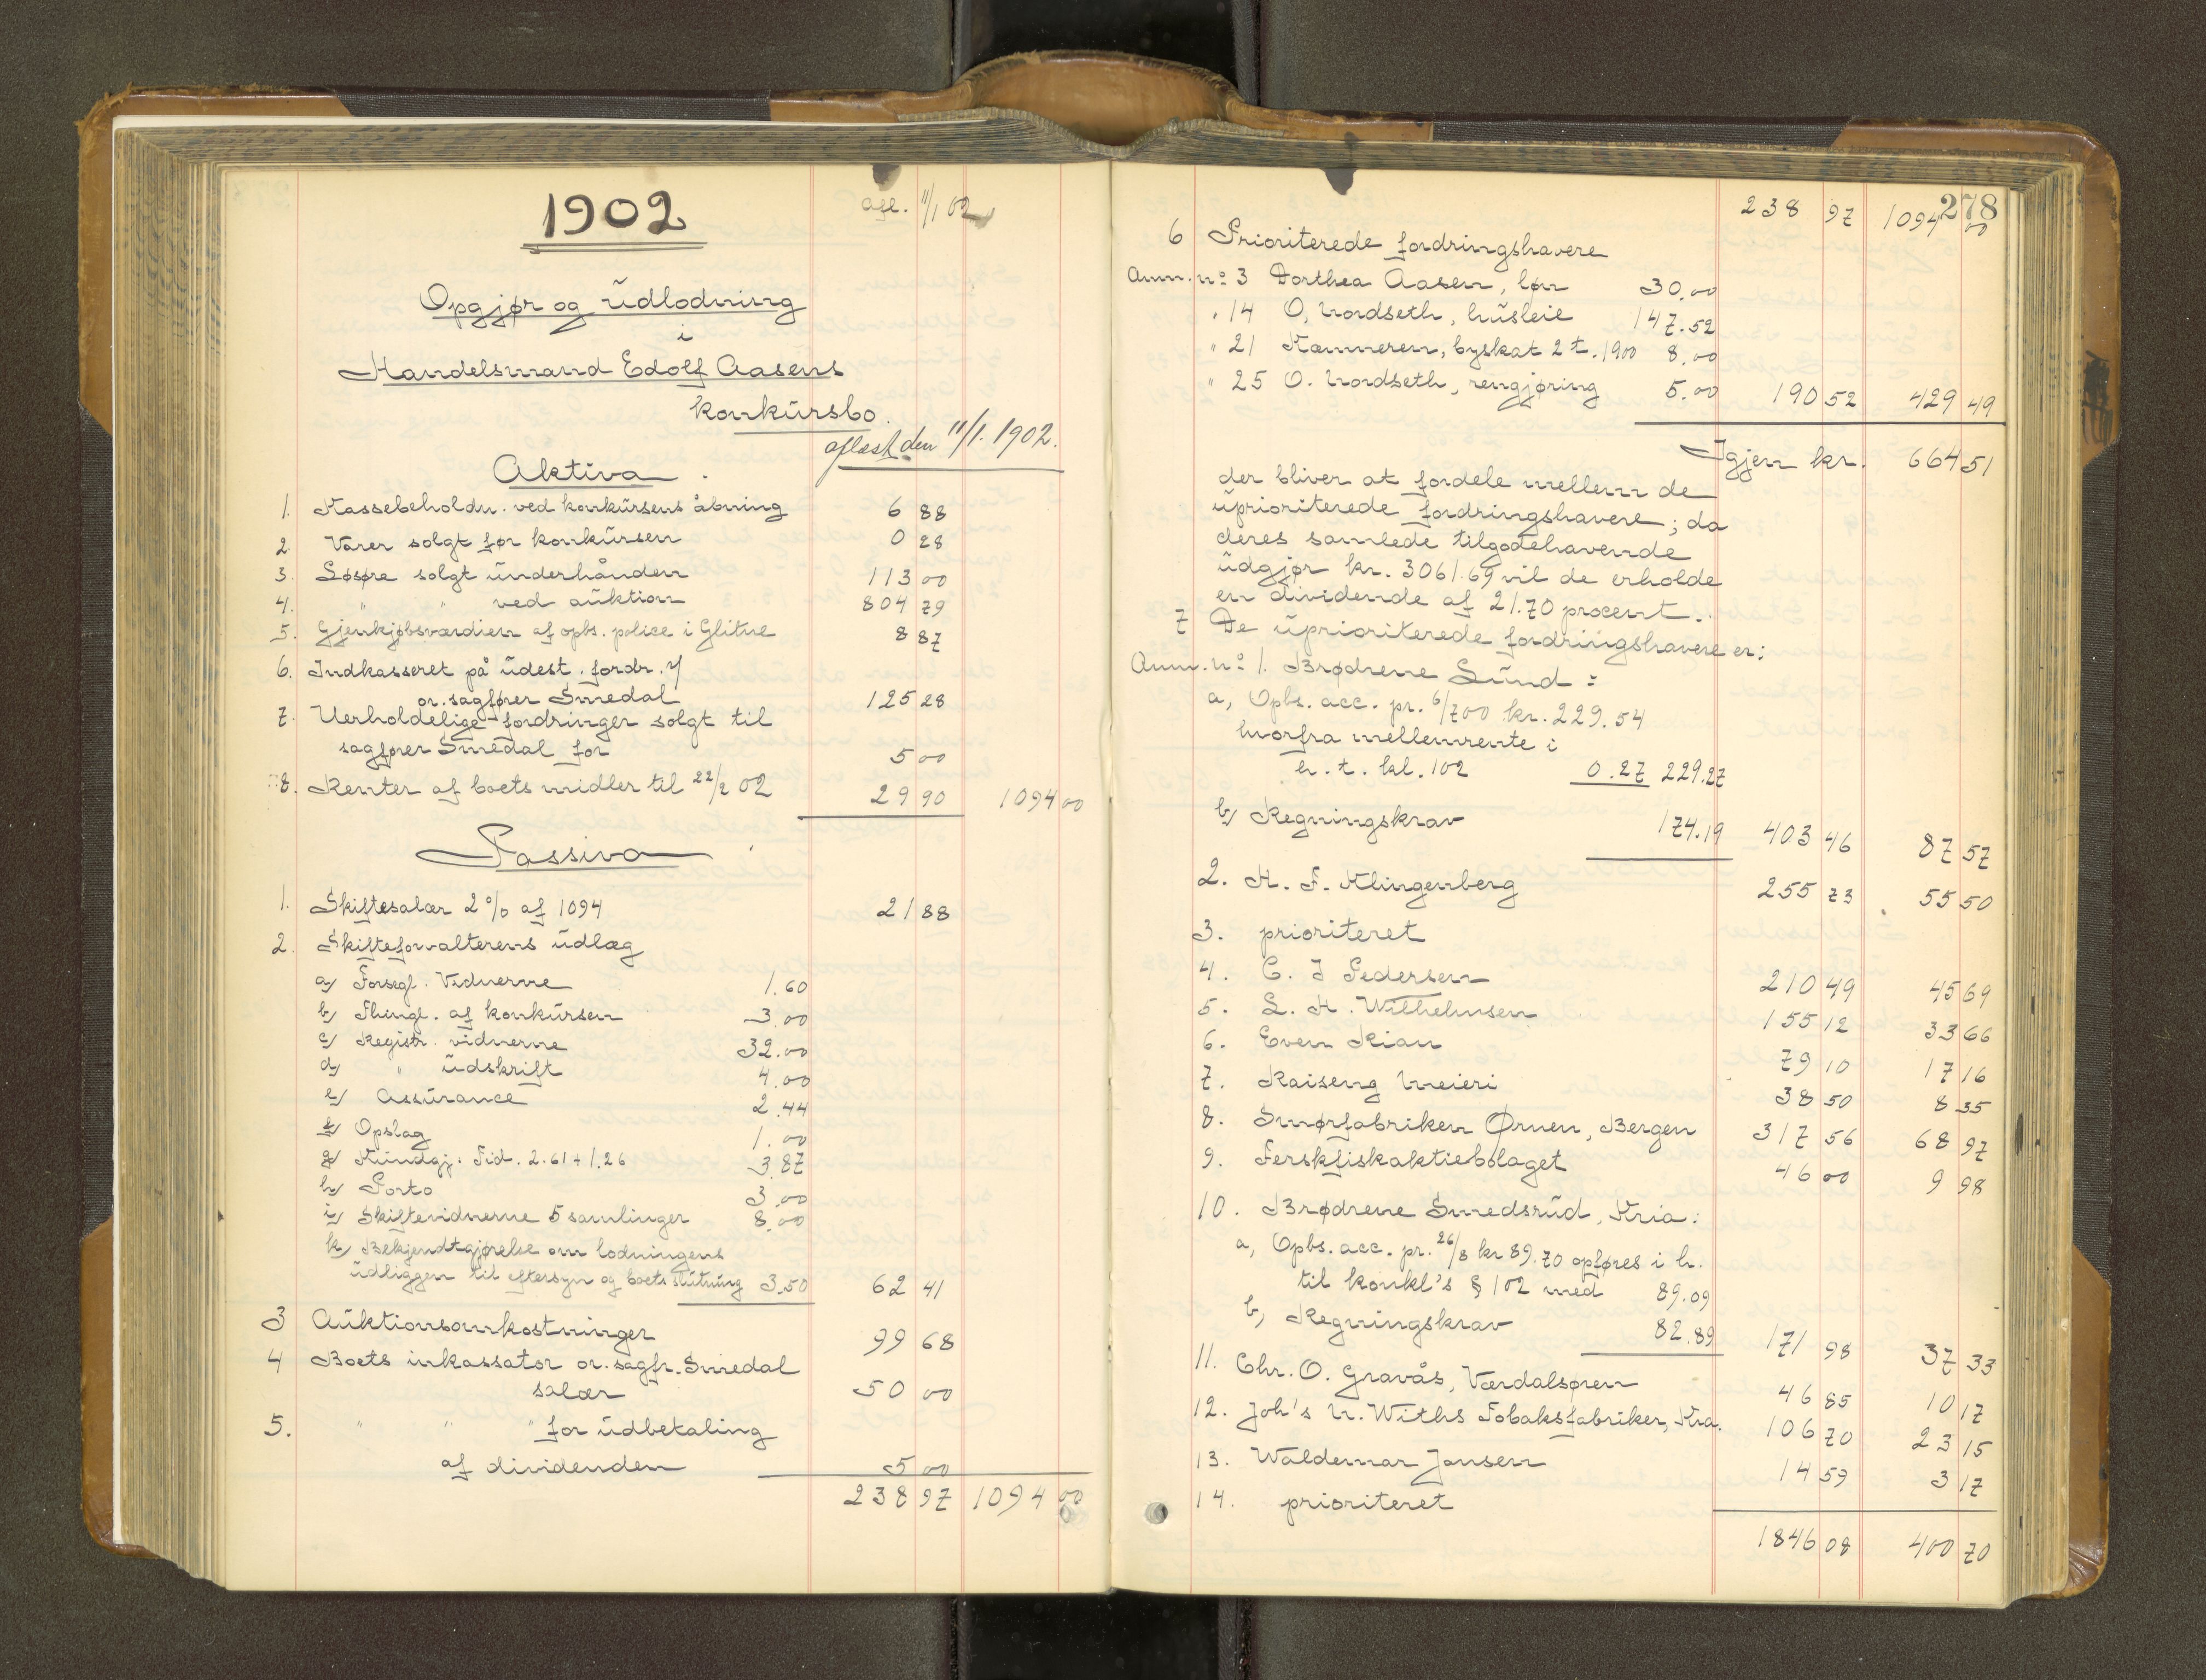 1902
afl. 11/1 02
Opgjør og udlodning
i
Handelsmand Edolf Aasens
konkursbo.
aflæst den 11/1. 1902.
Aktiva
1. Kassebeholdn. ved konkursens åbning 6 88
2. Varer solgt før konkursen 0 28
3. Løsøre solgt underhånden 113 00
4. " " ved auktion 804 79
5. Gjenkjøbsværdien af opbs. police i Glitne 8 87
6. Indkasseret på udest. fordr. v/
or. sagfører Smedal 125 28
7. Uerholdelige fordringer solgt til
sagfører Smedal for 5 00
8. Renter af boets midler til 22/2 02 29 90 1094 00
Passiva
1. Skiftesalær 2 % af 1094 21 88
2. Skifteforvalterens udlæg
a/ Forsegl. Vidnerne 1.60
b/ Thingl. af konkursen 3.00
c/ Registr. vidnerne 32.00
d/ " udskrift 4.00
e/ Assurance 2.44
f/ Opslag 1.00
g/ Kundgj. Tid. 2.61 + 1.26 3.87
h/ Porto 3.00
i/ Skiftevidnerne 5 samlinger 8.00
k/ Bekjendtgjørelse om lodningens
udliggen til eftersyn og boets slutning 3.50 62 41
3 Auktionsomkostninger 99 68
4 Boets inkassator or. sagfr. Smedal
salær 50 00
5. " " " for udbetaling
af dividenden 5 00
238 97 1094 00
278
238 97 1094 00
6 Prioriterede fordringshavere
Anm. no 3 Dorthea Aasen, løn 30.00
" 14 O. Nordseth, husleie 147.52
" 21 Kæmneren, byskat 2 t. 1900 8.00
" 25 O. Nordseth, rengjøring 5.00 190 52 429 49
Igjen kr. 664 51
der bliver at fordele mellem de
uprioriterede fordringshavere; da
deres samlede tilgodehavende
udgjør kr. 3061.69 vil de erholde
en dividende af 21.70 procent.
7 De uprioriterede fordringshavere er:
Anm. no 1. Brødrene Lund:
a, Opbs. acc. pr. 6/7 00 kr. 229.54
hvorfra mellemrente i
h. t. kl. 102 0.27 229.27
b/ Regningskrav 174.19 403 46 87 57
2. H. F. Klingenberg 255 73 55 50
3. prioriteret
4. C. J Pedersen 210 49 45 69
5. L. H. Wilhelmsen 155 12 33 66
6. Even Rian 79 10 17 16
7. Kaiseng Meieri 38 50 8 35
8. Smørfabriken Ørnen, Bergen 317 56 68 97
9. Ferskfiskaktiebolaget 46 00 9 98
10. Brødrene Smedsrud, Kria:
a, Opbs. acc. pr. 26/8 kr 89.70 opføres i h.
til konkl's § 102 med 89.09
b, Regningskrav 82.89 171 98 37 33
11. Chr. O. Gravås, Værdalsøren 46 85 10 17
12. Joh's N. Withs Tobaksfabriker, Kra. 106 70 23 15
13. Waldemar Jansen 14 59 3 17
14. prioriteret
1846 08 400 70